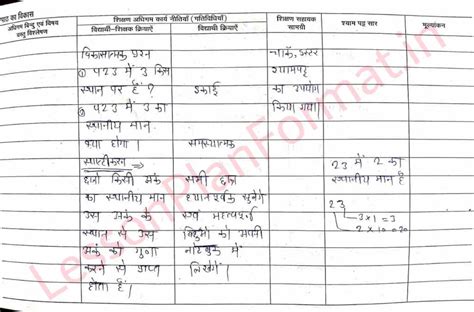 पाठ का विकास
अधिगम बिन्दु एवं विषय वस्तु विश्लेषण
शिक्षण अधिगम कार्य नीतियाँ (गतिविधियाँ)
विद्यार्थी-शिक्षक क्रियाएँ
विद्यार्थी क्रियाएँ
शिक्षण सहायक सामग्री
श्याम पट्ट सार
मूल्यांकन
विकासात्मक प्रश्न
① 423 में 3 किस
स्थान पर है?
इकाई
② 423 में 3 का
स्थानीय मान
क्या होगा।
समस्यात्मक
चाक, डस्टर
श्यामपट्ट
का उपयोग
किया गया।
स्पष्टीकरण ⇒
किसी अंक
का स्थानीय मान
उस अंक के
स्थान से उस
अंक का गुणा
करने से प्राप्त
होता है।
सभी छात्र
ध्यानपूर्वक सुनेंगे
एवं महत्वपूर्ण
बिंदुओं को अपनी
नोटबुक में
लिखेंगे।
23 में 2 का
स्थानीय मान है
23
3×1 = 3
2×10 = 20
LessonPlanFormat.in